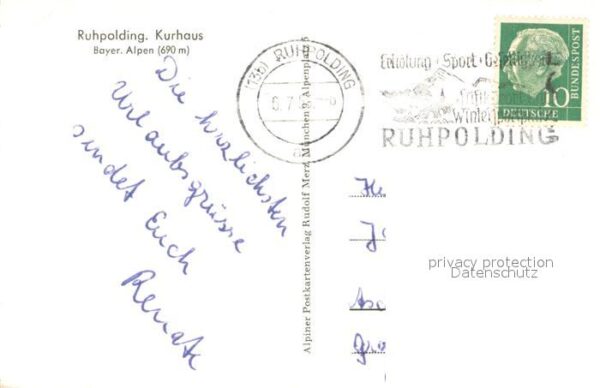 Ruhpolding. Kurhaus
Bayer. Alpen (690 m)
Die herzlichsten
Urlaubsgrüsse
sendet Euch
Renate
Alpiner Postkartenverlag Rudolf Merz, München 9, Alpenplatz 5
(13b) RUHPOLDING
Erholung · Sport
Winter
RUHPOLDING
10
DEUTSCHE
BUNDESPOST
privacy protection
Datenschutz